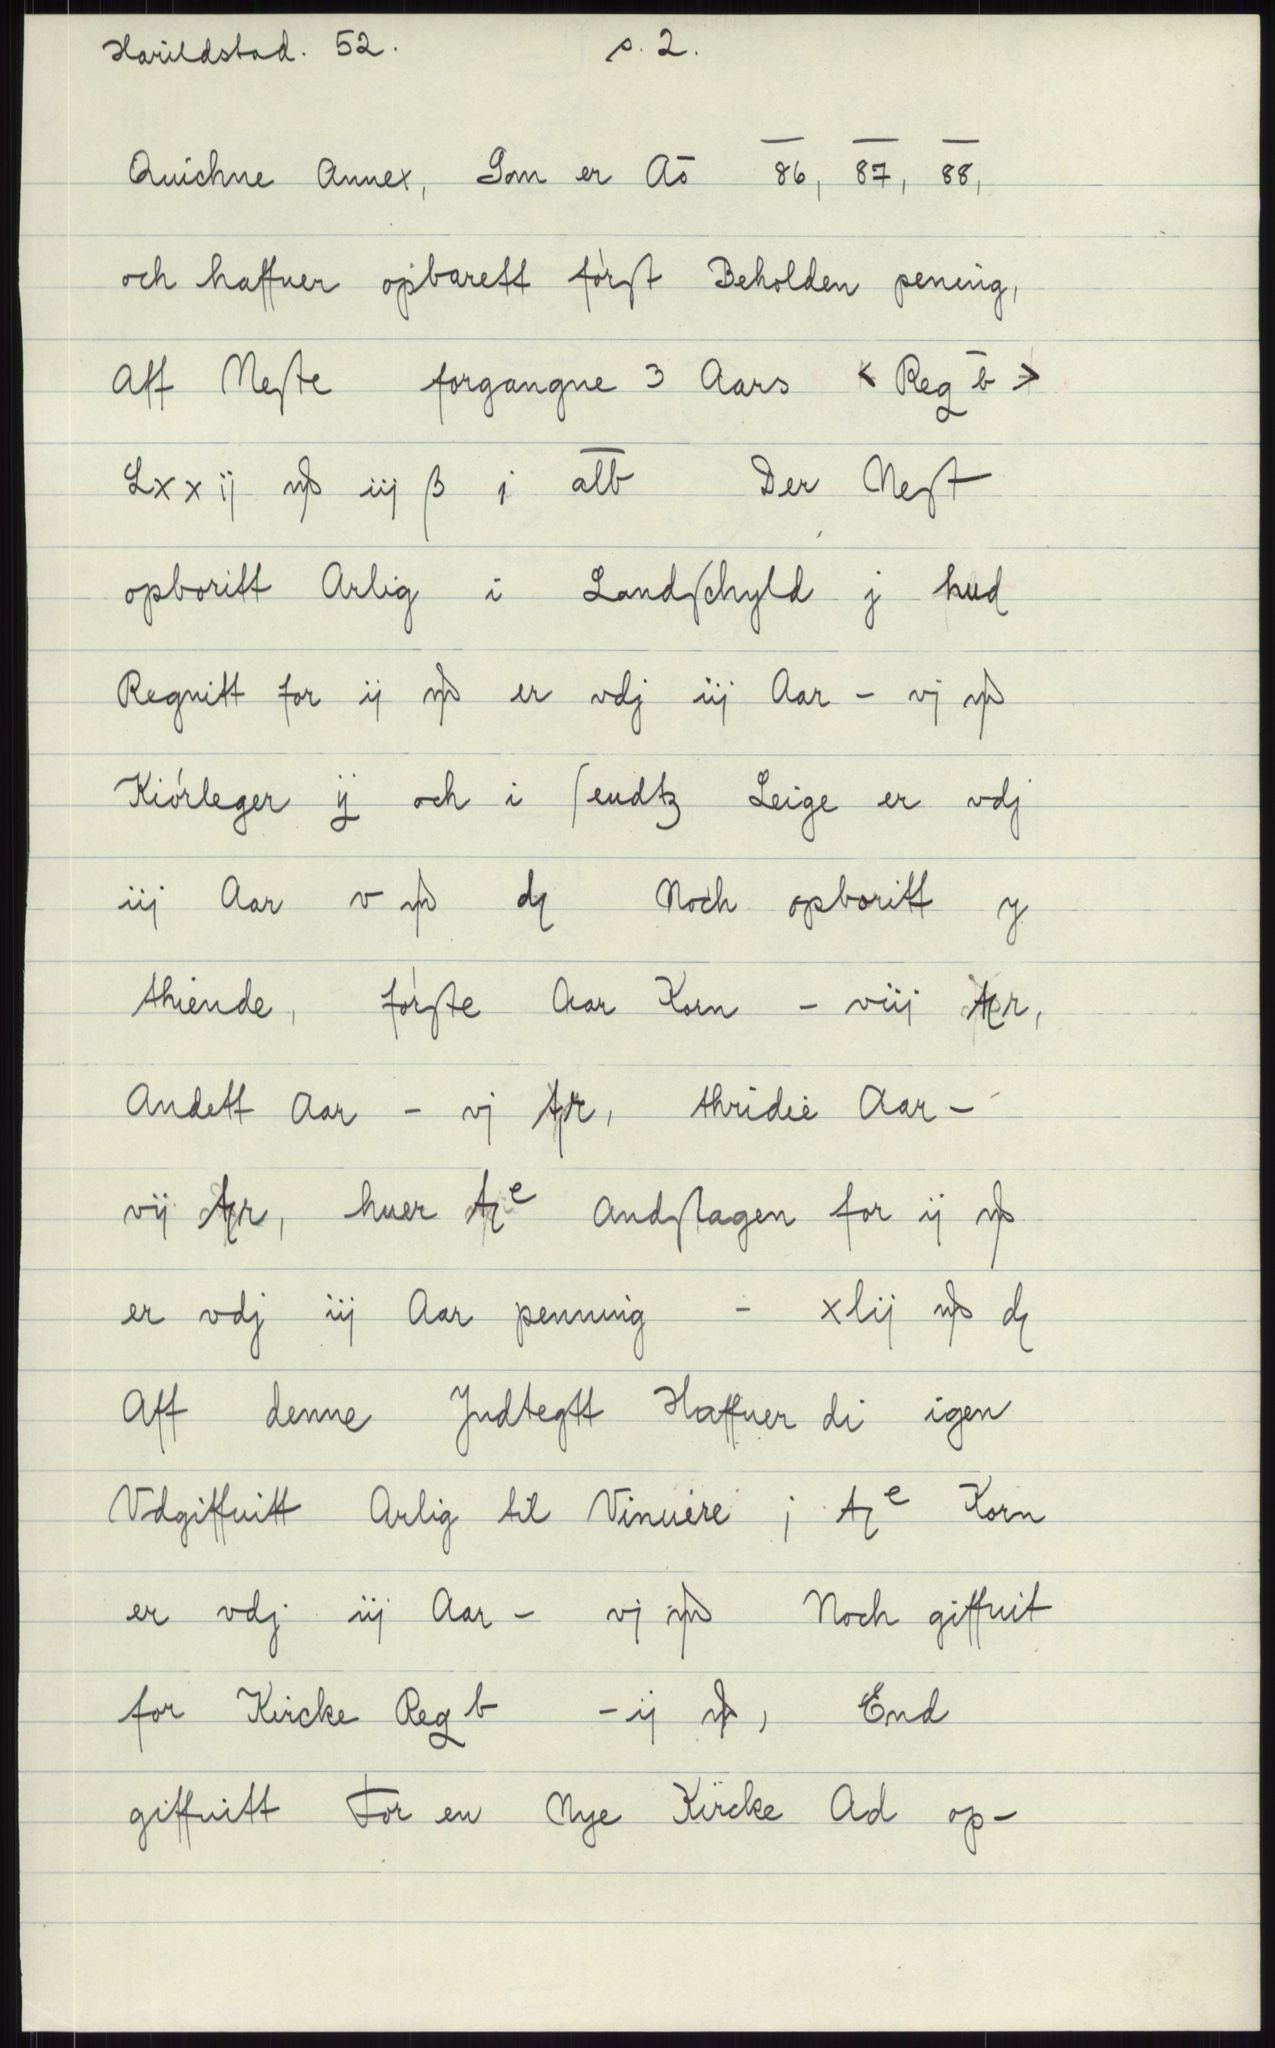 Harildstad. 52. s. 2.
Quichne Annex, Som er Aō 86, 87, 88,
och haffuer opbarett først Beholden pening,
Aff Neste forgangne 3 Aars < Reg b̄ >
Lxxij mþ iij β j alb Der Nest
opboritt Arlig i Landschyld j hud
Regnitt for ij mþ er vdj iij Aar - vj mþ
Kiørleger ij och i sendtz Leige er vdj
iij Aar v mþ Noch opboritt y
thiende, første Aar Korn - viij tr,
Andett Aar - vj tr, thridie Aar -
vij tr, huer te Andslagen for ij mþ
er vdj iij Aar penning - xlij mþ
Aff denne Jndtegtt Haffuer di igen
Vdgiffuitt Arlig til Vinuere j te Korn
er vdj iij Aar - vj mþ Noch giffuit
for Kircke Reg b - ij mþ, End
giffuitt For en Nye Kircke Ad op-